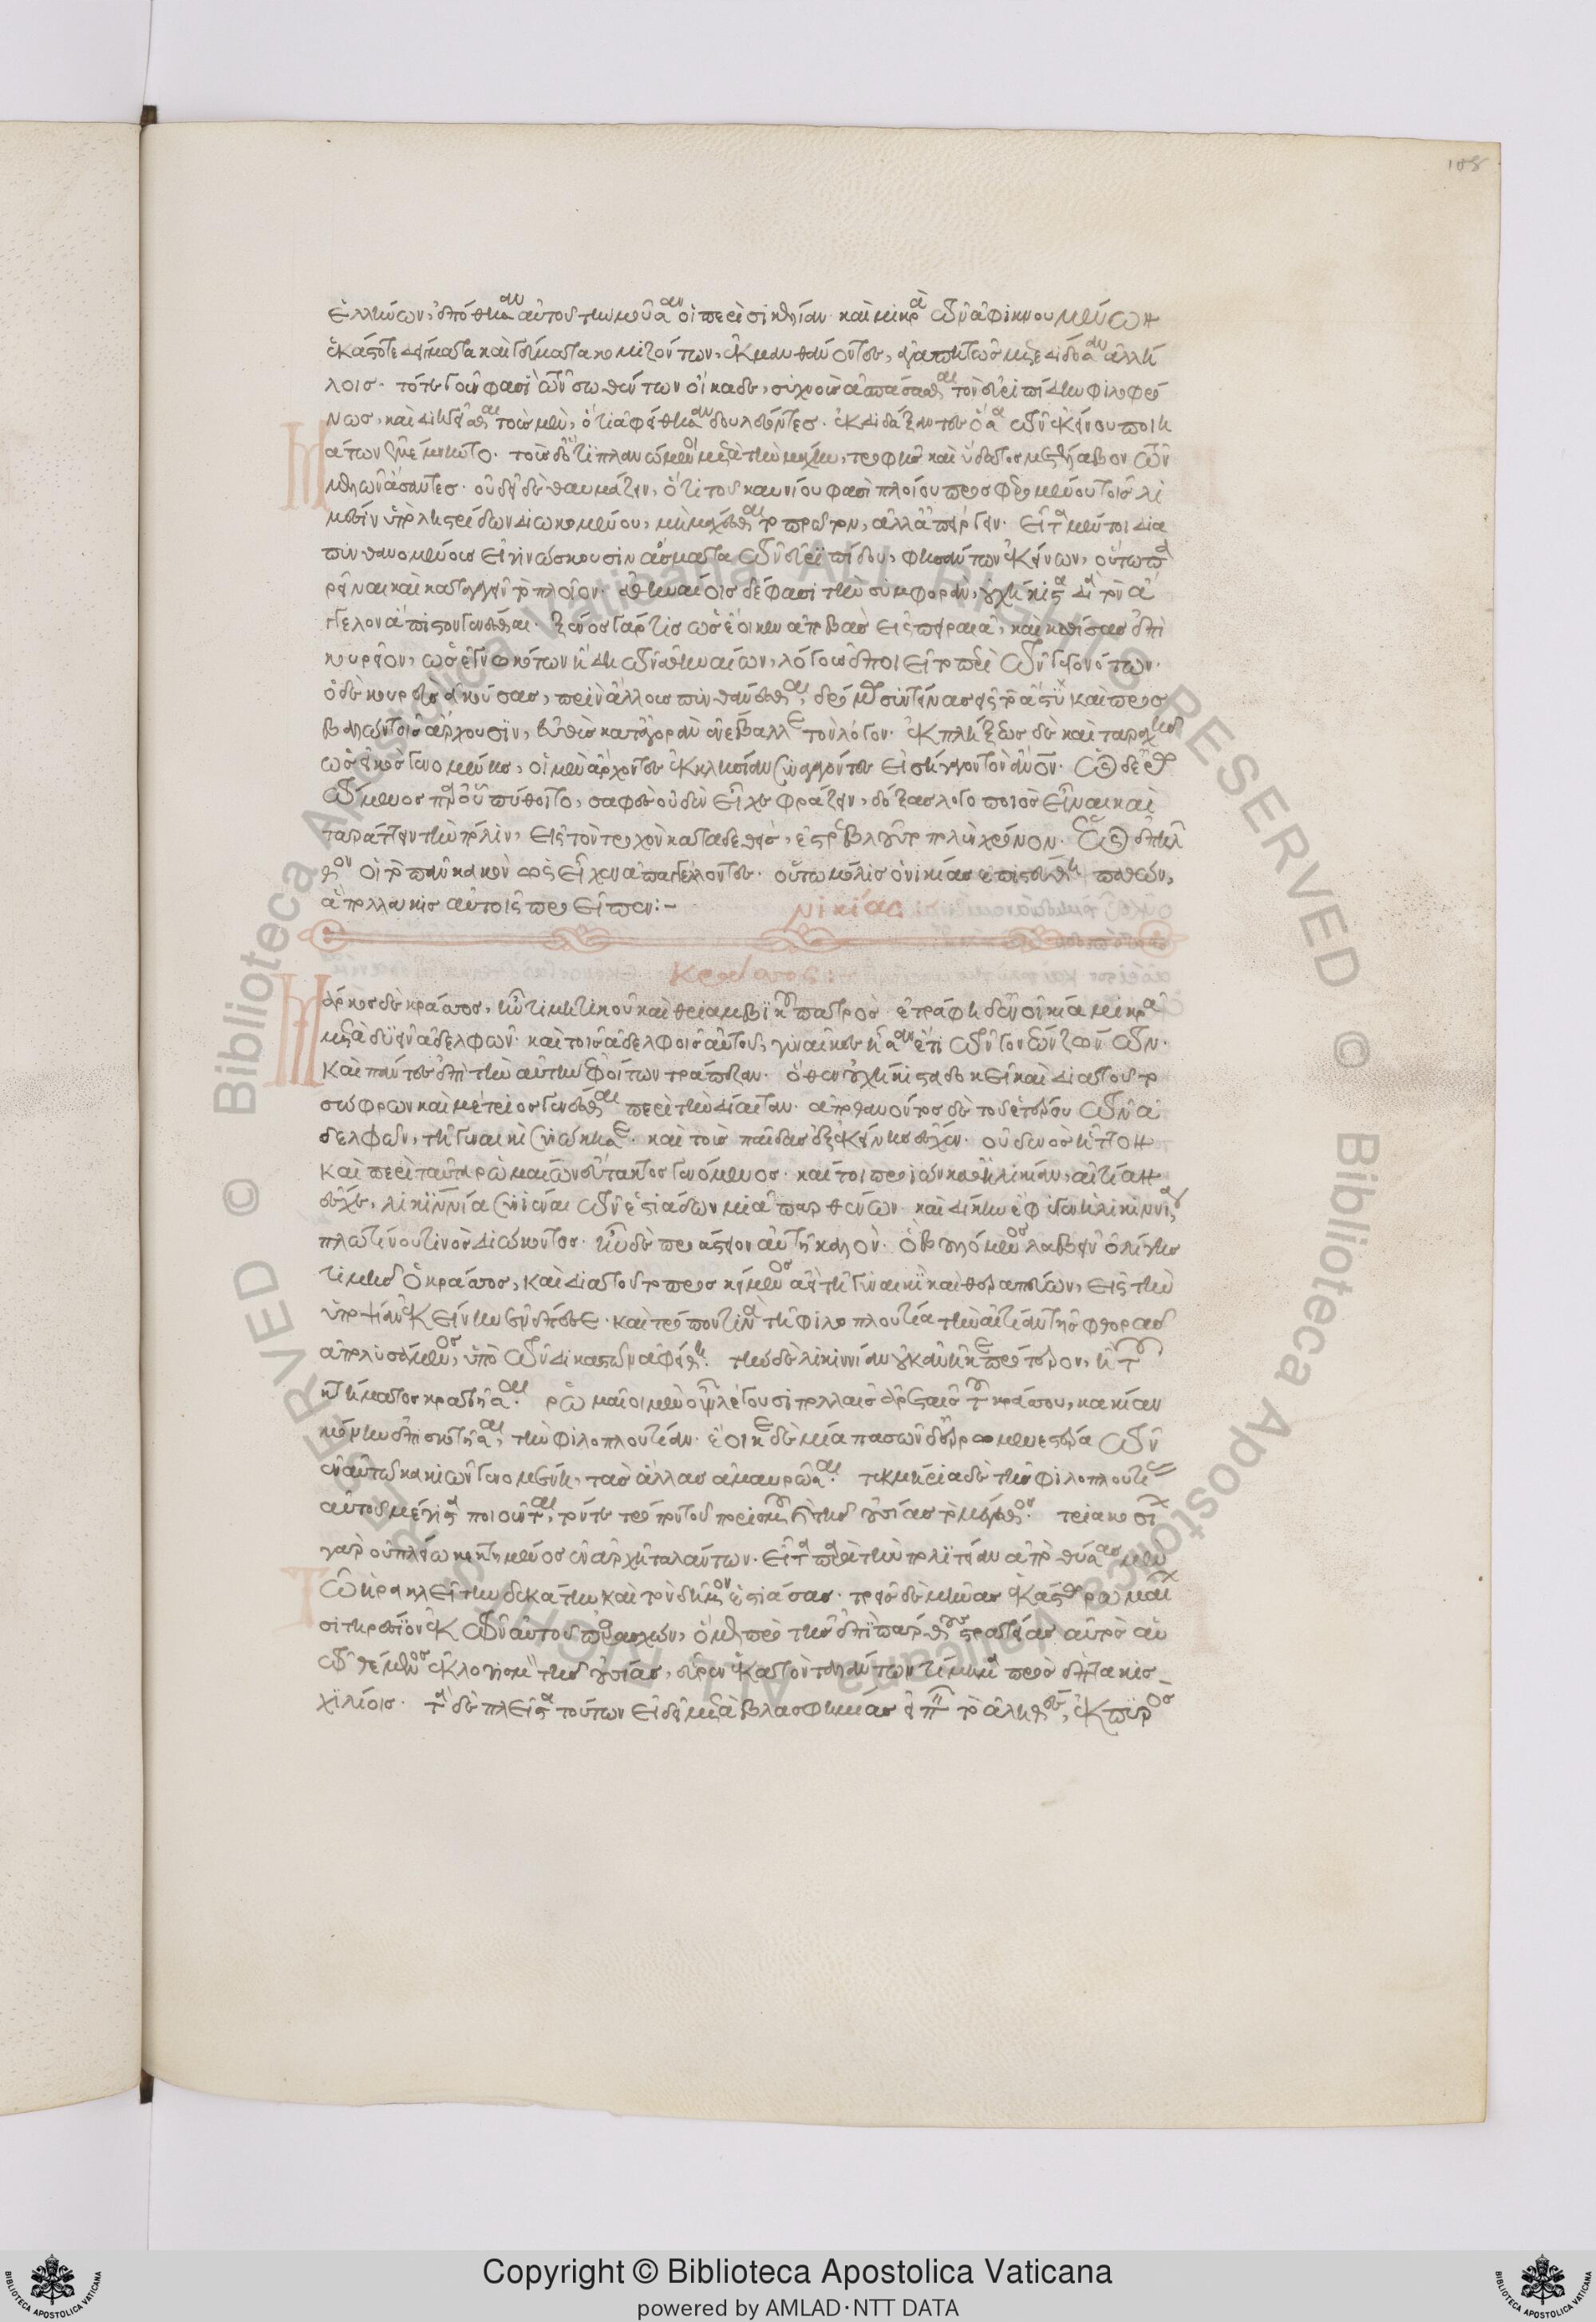 ἑλλήνων, ἐπόθησαν αὐτοῦ τὴν μοῦσαν οἱ περὶ σικελίαν· καὶ μικρὰ τῶν ἀφικνουμένων
ἑκάστοτε δείγματα καὶ γεύματα κομιζόντων, ἐκμανθάνοντες, ἀγαπητῶς μετεδίδοσαν ἀλλή
λοις· τότε γοῦν φασὶ τῶν σωθέντων οἴκαδε, συχνοὺς ἀσπάσασθαι τὸν εὐριπίδην φιλοφρό
νως, καὶ διηγεῖσθαι τοὺς μὲν, ὅτι ἀφείθησαν δουλεύοντες· ἐκδιδάξαντες ὅσα τῶν ἐκείνου ποιη
μάτων ἐμέμνηντο· τοὺς δ' ὅτι πλανώμενοι μετὰ τὴν μάχην, τροφῆς καὶ ὕδατος μετέλαβον τῶν
μελῶν ἄσαντες· οὐ δεῖ δὲ θαυμάζειν, ὅτι τοῦ καυνίου φασὶ πλοίου προσφερομένου τοῖς λι
μέσιν ὑπὸ ληστρίδων διωκομένου, μὴ δέχεσθαι τὸ πρῶτον, ἀλλ' ἀπείργειν· εἶτα μέντοι δια
πυνθανομένους εἰ γινώσκουσιν ἄσματα τῶν εὐριπίδου, φησάντων ἐκείνων, οὕτω πα
ρεῖναι καὶ καταγαγεῖν τὸ πλοῖον· ἀθηναίοις δέ φασι τὴν συμφορὰν, οὐχ ἥκιστα διὰ τὸν ἄ
γγελον ἄπιστον γενέσθαι· ξένος γάρ τις ὡς ἔοικεν ἀποβὰς εἰς πειραιᾶ, καὶ καθίσας ἐπὶ
κουρεῖον, ὡς ἐγνωκότων ἤδη τῶν ἀθηναίων, λόγους ἐποιεῖτο περὶ τῶν γεγονότων·
ὁ δὲ κουρεὺς ἀκούσας, πρὶν ἄλλους πυνθάνεσθαι, δρόμῳ συντείνας εἰς τὸ ἄστυ καὶ προσ
βαλὼν τοῖς ἄρχουσιν, εὐθὺς κατ' ἀγορὰν ἐνέβαλλε τὸν λόγον· ἐκπλήξεως δὲ καὶ ταραχῆς
ὡς εἰκὸς γενομένης, οἱ μὲν ἄρχοντες ἐκκλησίαν συναγαγόντες εἰσήγαγον τὸν ἄνθρωπον· ὡς δ' ἐρω
τώμενος παρ' οὗ πύθοιτο, σαφὲς οὐδὲν εἶχε φράζειν, δόξας λογοποιὸς εἶναι καὶ
ταράττειν τὴν πόλιν, εἰς τὸν τροχὸν καταδεθεὶς, ἐστρεβλοῦτο πολὺν χρόνον· ἕως ἐπῆλ
θον οἱ τὸ πᾶν κακὸν ὡς εἶχεν ἀπαγγέλλοντες· οὕτω μόλις ὁ νικίας ἐπιστεύθη παθὼν,
ἃ πολλάκις αὐτοῖς προεῖπεν:-
νικίας:
κράσσος:
Μάρκος δὲ κράσσος, ἦν τιμητικοῦ καὶ θριαμβικοῦ πατρός· ἐτράφη δ' ἐν οἰκίᾳ μικρᾷ
μετὰ δυεῖν ἀδελφῶν· καὶ τοῖς ἀδελφοῖς αὐτοῦ, γυναῖκες ἦσαν ἔτι τῶν γονέων ζώντων·
καὶ πάντες ἐπὶ τὴν αὐτὴν ἐφοίτων τράπεζαν· ὅθεν οὐχ ἥκιστα δοκεῖ καὶ διὰ τοῦτο
σώφρων καὶ μέτριος γενέσθαι περὶ τὴν δίαιταν· ἀποθανόντος δὲ τοῦ ἑτέρου τῶν ἀ
δελφῶν, τῇ γυναικὶ συνώκησε· καὶ τοὺς παῖδας ἐξ ἐκείνης ἔσχεν· οὐδενὸς ἧττον
καὶ περὶ ταῦτα ῥωμαίων εὔτακτος γενόμενος· καίτοι προϊὼν καθ' ἡλικίαν, αἰτίαν
ἔσχε, λικιννίᾳ συνιέναι τῶν ἑστιάδων μιᾷ παρθένων· καὶ δίκην ἔφυγεν ἡ λικιννία,
πλωτίνου τινὸς διώκοντος· ἦν δὲ προάστειον αὐτῇ καλὸν· ὃ βουλόμενος λαβεῖν ὀλίγης
τιμῆς ὁ κράσσος, καὶ διὰ τοῦτο προσκείμενος ἀεὶ τῇ γυναικὶ καὶ θεραπεύων, εἰς τὴν
ὑποψίαν ἐκείνην ἐνέπεσε· καὶ τρόπον τινὰ τῇ φιλοπλουτίᾳ τὴν αἰτίαν τῆς φθορᾶς
ἀπολυσάμενος, ὑπὸ τῶν δικαστῶν ἀφείθη· τὴν δὲ λικιννίαν οὐκ ἀνῆκε πρότερον, ἢ τοῦ
κτήματος κρατῆσαι· ῥωμαῖοι μὲν οὖν λέγουσι πολλαῖς ἀρεταῖς τοῦ κράσσου, κακίαν
μόνην ἐπισκοτῆσαι, τὴν φιλοπλουτίαν· ἔοικε δὲ μία πασῶν ἐρρωμενεστέρα τῶν
ἐν αὐτῷ κακιῶν γενομένη, τὰς ἄλλας ἀμαυρῶσαι· τεκμήρια δὲ τῆς φιλοπλουτίας
αὐτοῦ μέγιστα ποιοῦνται, τόν τε τρόπον τοῦ πορισμοῦ καὶ τῆς οὐσίας τὸ μέγεθος· τριακοσίων
γὰρ οὐ πλείω κεκτημένος ἐν ἀρχῇ ταλάντων· εἶτα παρὰ τὴν πολιτείαν ἀποθύσας μὲν
τῷ ἡρακλεῖ τὴν δεκάτην καὶ τὸν δῆμον ἑστιάσας· τρεῖς δὲ μῆνας ἑκάστῳ ῥωμαίων
σιτηρέσιον ἐκ τῶν αὐτοῦ παρασχὼν, ὅμως πρὸ τῆς ἐπὶ πάρθους στρατείας αὐτὸς αὑ
τῷ θέμενος ἐκλογισμὸν τῆς οὐσίας, εὗρεν ἑκατὸν ταλάντων τίμημα πρὸς ἑπτακισ
χιλίοις· τὰ δὲ πλεῖστα τούτων εἰ δεῖ μετὰ βλασφημίας εἰπεῖν τὸ ἀληθὲς, ἐκ πυρὸς
Copyright © Biblioteca Apostolica Vaticana
powered by AMLAD·NTT DATA